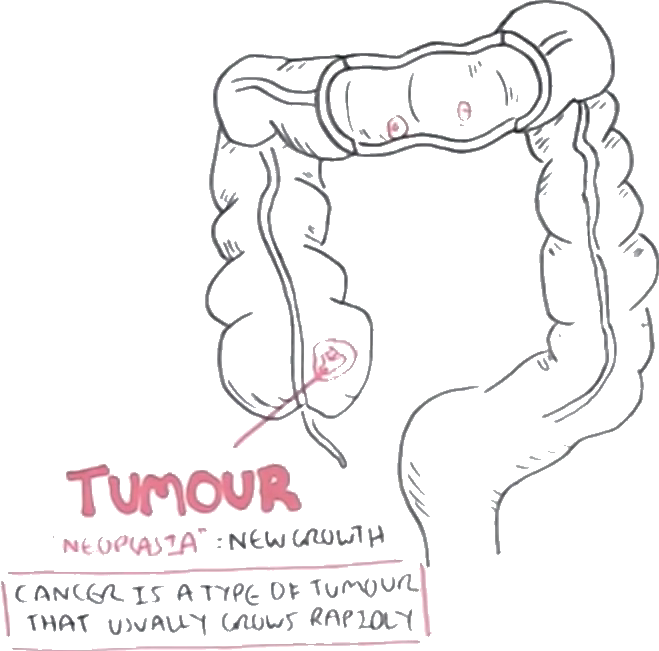 TUMOUR
"NEOPLASIA" : NEW GROWTH
CANCER IS A TYPE OF TUMOUR
THAT USUALLY GROWS RAPIDLY